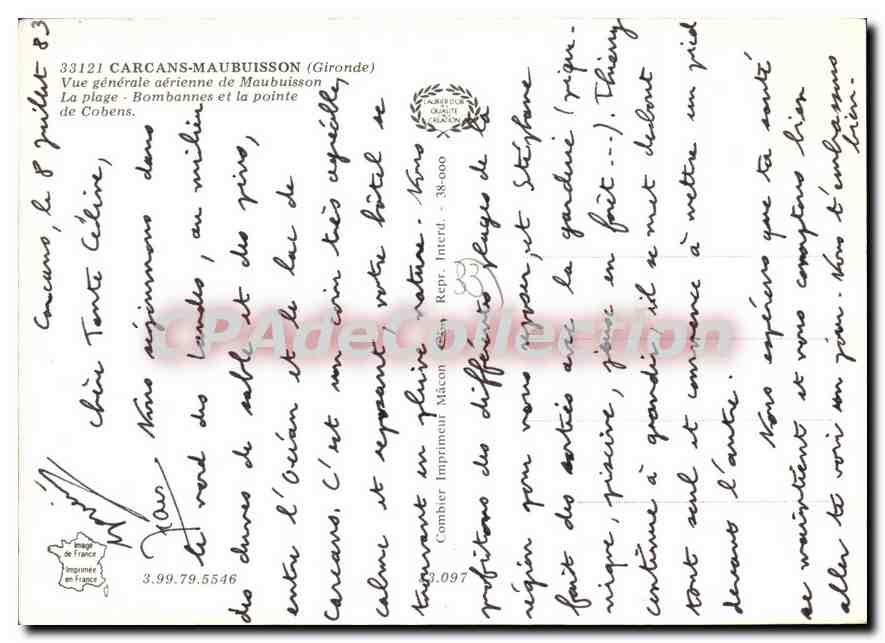 33121 CARCANS-MAUBUISSON (Gironde)
Vue générale aérienne de Maubuisson
La plage - Bombannes et la pointe
de Cobens.
LAURIER D'OR
DE LA
QUALITÉ
DE
CRÉATION
Carcans, le 8 juillet 83
Chère Tante Céline,
Nous séjournons dans
le nord des Landes, au milieu
des dunes de sable et des pins,
entre l'Océan et le lac de
Carcans. C'est un coin très agréable,
calme et reposant, notre hôtel se
trouvant en pleine nature. Nous
profitons des différentes plages de la
région pour nous reposer, et Stéphane
fait des sorties avec la garderie (pique-
nique, piscine, jeux en forêt ---). Thierry
continue à grandir, il se met debout
tout seul et commence à mettre un pied
devant l'autre.
Nous espérons que ta santé
se maintient et nous comptons bien
aller te voir un jour. Nous t'embrassons
bien.
Combier Imprimeur Mâcon Repr. Interd. - 38-000
83
CPAdeCollection
Image
de France
Imprimée
en France
3.99.79.5546
83.097